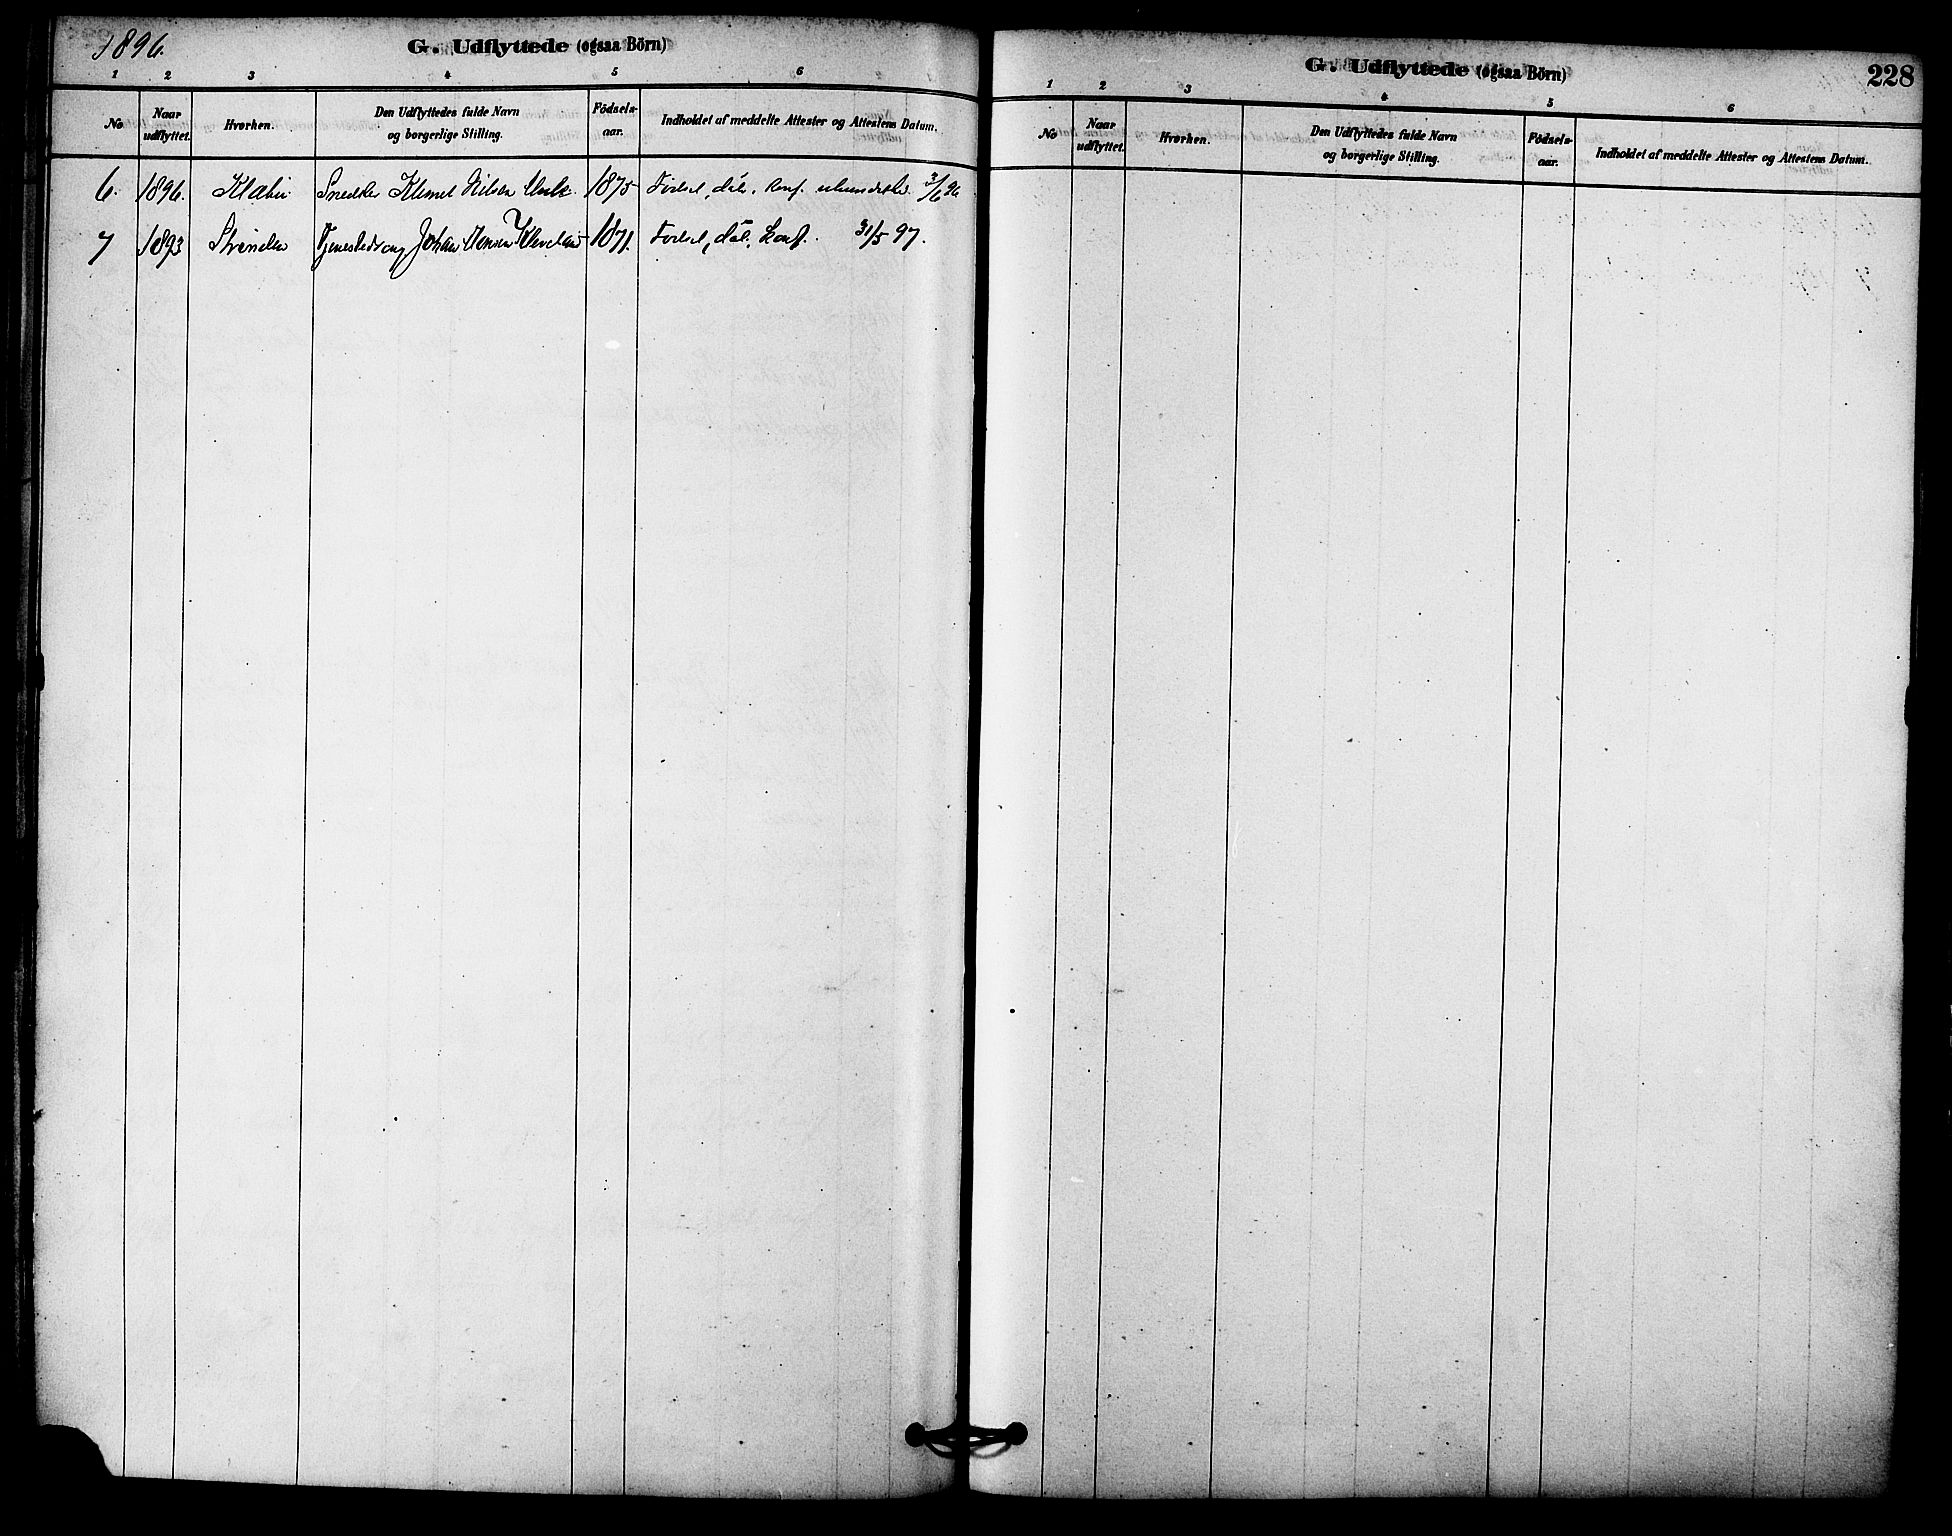 1896.
G. Udflyttede (ogsaa Börn)
1 2 3 4 5 6
No
Naar udflyttet.
Hvorhen.
Den Udflyttedes fulde Navn og borgerlige Stilling.
Födsels-aar.
Indholdet af meddelte Attester og Attestens Datum.
6. 1896. Klæbu Snedker Klemet Nilsen 1875 Födsel, dåb, konf. 3/6 96
7 1893 Strinden Johan Hansen 1871. Födsel, dåb, konf. 31/5 97.
G. Udflyttede (ogsaa Börn)
228
1 2 3 4 5 6
No
Naar udflyttet.
Hvorhen.
Den Udflyttedes fulde Navn og borgerlige Stilling.
Födsels-aar.
Indholdet af meddelte Attester og Attestens Datum.